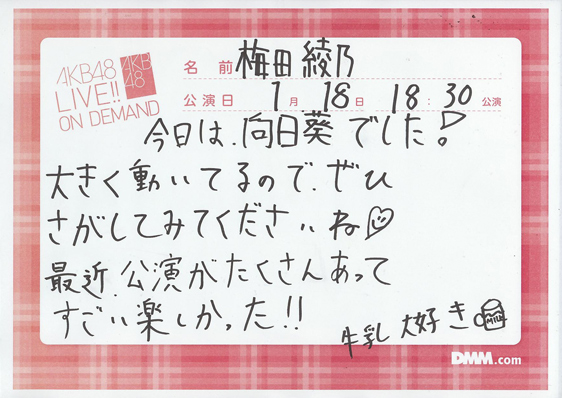 AKB48
LIVE!!
ON DEMAND
AKB
48
名前 梅田綾乃
公演日 1月 18日 18:30 公演
今日は、向日葵でした!
大きく動いてるので、ぜひ
さがしてみてくださいね
最近、公演がたくさんあって
すごい楽しかった!!
牛乳大好き
MILK
DMM.com